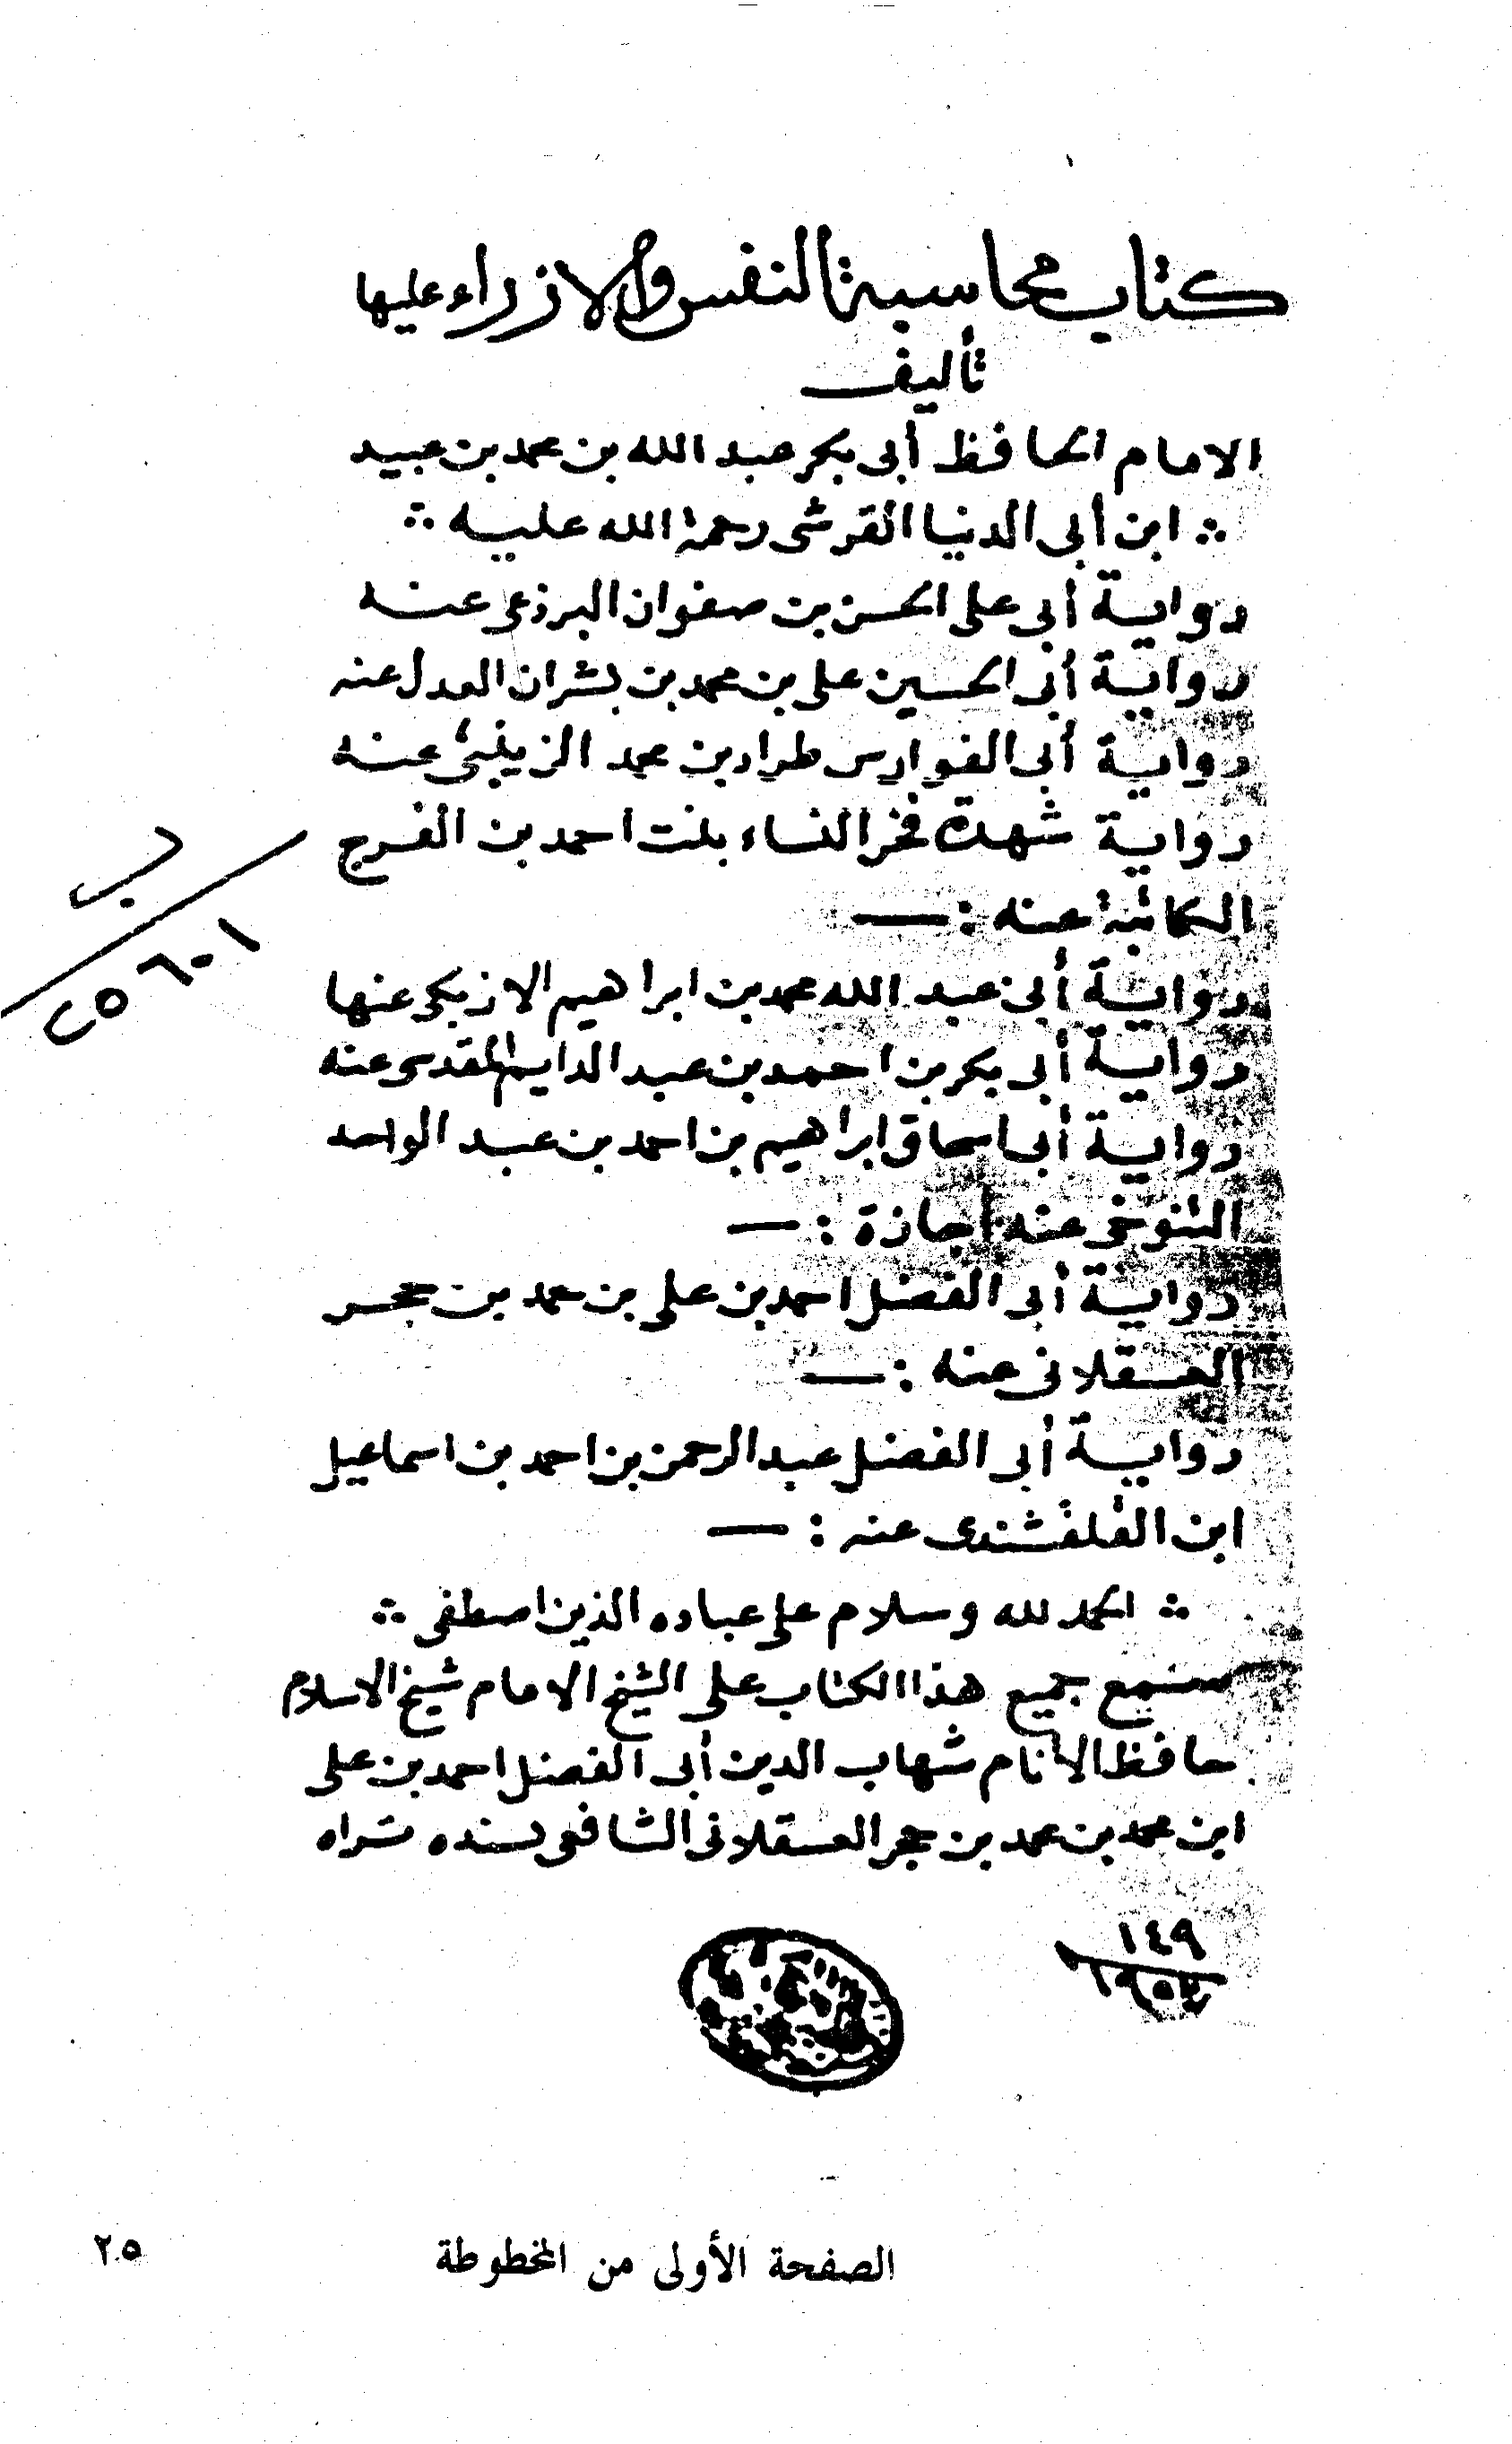 كتاب محاسبة النفس والازراء عليها
تأليف
الامام الحافظ أبى بكر عبد الله بن محمد بن عبيد
ابن أبى الدنيا القرشى رحمة الله عليه
رواية أبى على الحسن بن صفوان البرذعى عنه
رواية أبى الحسين على بن محمد بن بشران العدل عنه
رواية أبى الفوارس طراد بن محمد الزينبى عنه
رواية شهدة فخر النساء بنت احمد بن الفرج
الكاتبة عنه :—
رواية أبى عبد الله محمد بن ابراهيم الازبكى عنها
رواية أبى بكر بن احمد بن عبد الدايم المقدسى عنه
رواية أبى اسحاق ابراهيم بن احمد بن عبد الواحد
التنوخى عنه اجازة :—
رواية أبى الفضل احمد بن على بن حمد بن حجر
العسقلانى عنه :—
رواية أبى الفضل عبد الرحمن بن احمد بن اسماعيل
ابن القلقشندى عنه :—
الحمد لله وسلام على عباده الذين اصطفى
سمع جميع هذا الكتاب على الشيخ الامام شيخ الاسلام
حافظ الانام شهاب الدين أبى الفضل احمد بن على
ابن محمد بن محمد بن حجر العسقلانى الشافعى بسنده تراه
ب
٢٥٦٠١
١٤٩
الصفحة الأولى من المخطوطة
٢٥